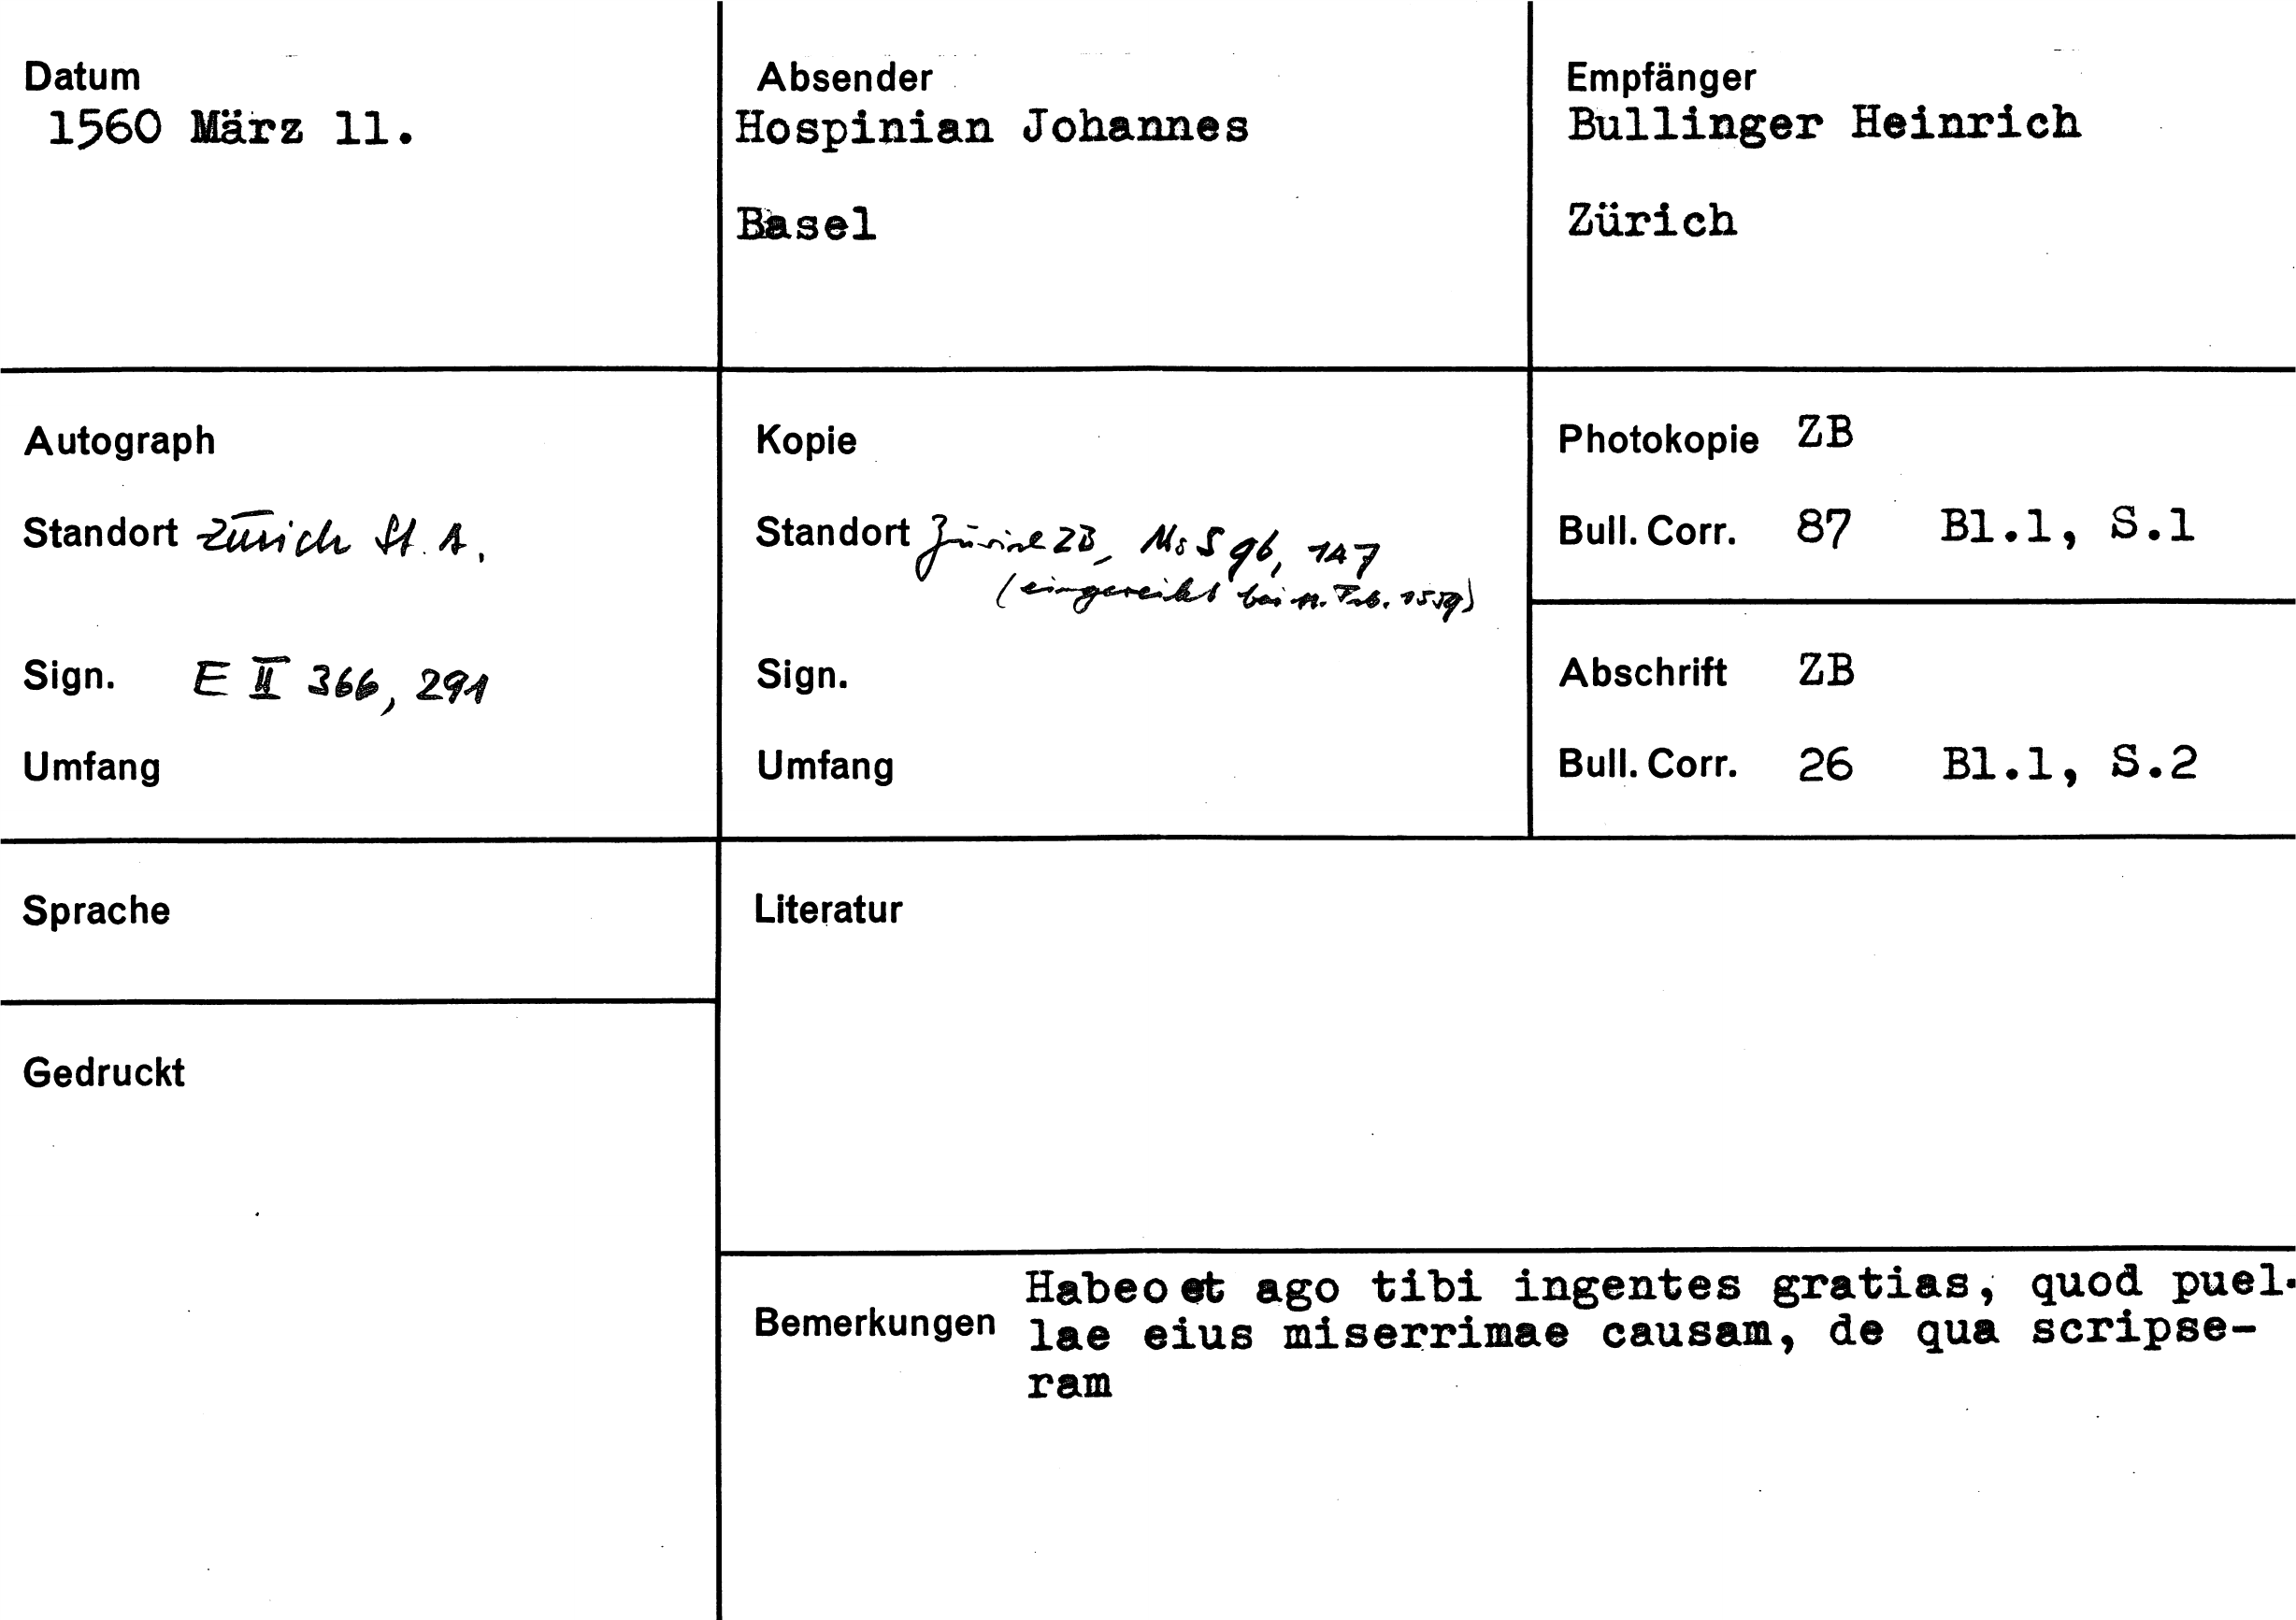 Datum
1560 März 11.
Absender
Hospinian Johannes
Basel
Empfänger
Bullinger Heinrich
Zürich
Autograph
Standort Zürich St. A.
Sign. E II 366, 291
Umfang
Kopie
Standort Zürich ZB, Ms S 96, 147
(eingereiht bei 11. Feb. 1559)
Sign.
Umfang
Photokopie ZB
Bull. Corr. 87 Bl.1, S.1
Abschrift ZB
Bull. Corr. 26 Bl.1, S.2
Sprache
Literatur
Gedruckt
Bemerkungen
Habeo et ago tibi ingentes gratias, quod puel-
lae eius miserrimae causam, de qua scripse-
ram